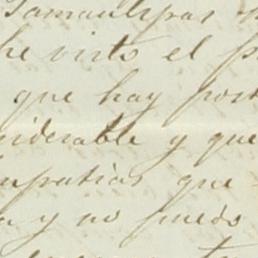 Tamaulipas
he visto el
que hay
siderable y que
mpatias que
a y no puedo